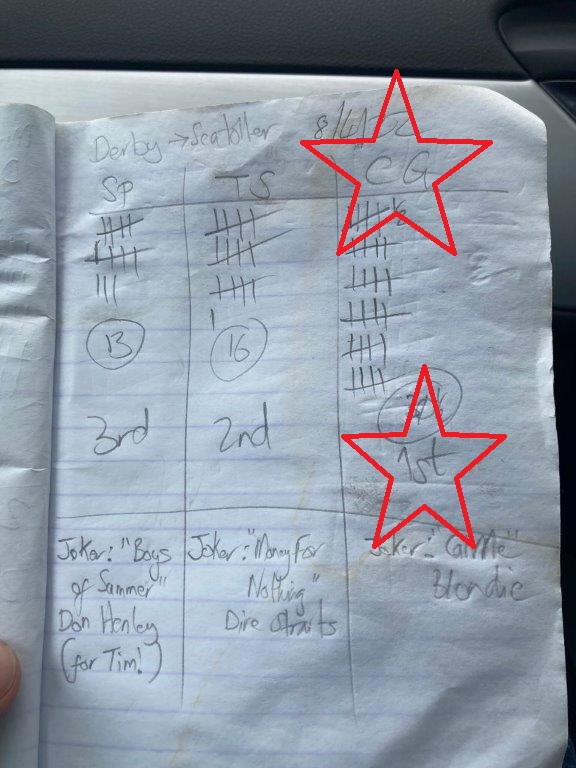 Derby → Seatoller 8/4/22
SP TS CG
½
13
16
3rd 2nd 1st
Joker: "Boys
of Summer"
Don Henley
(for Tim!)
Joker: "Money For
Nothing"
Dire Straits
Joker: "Call Me"
Blondie